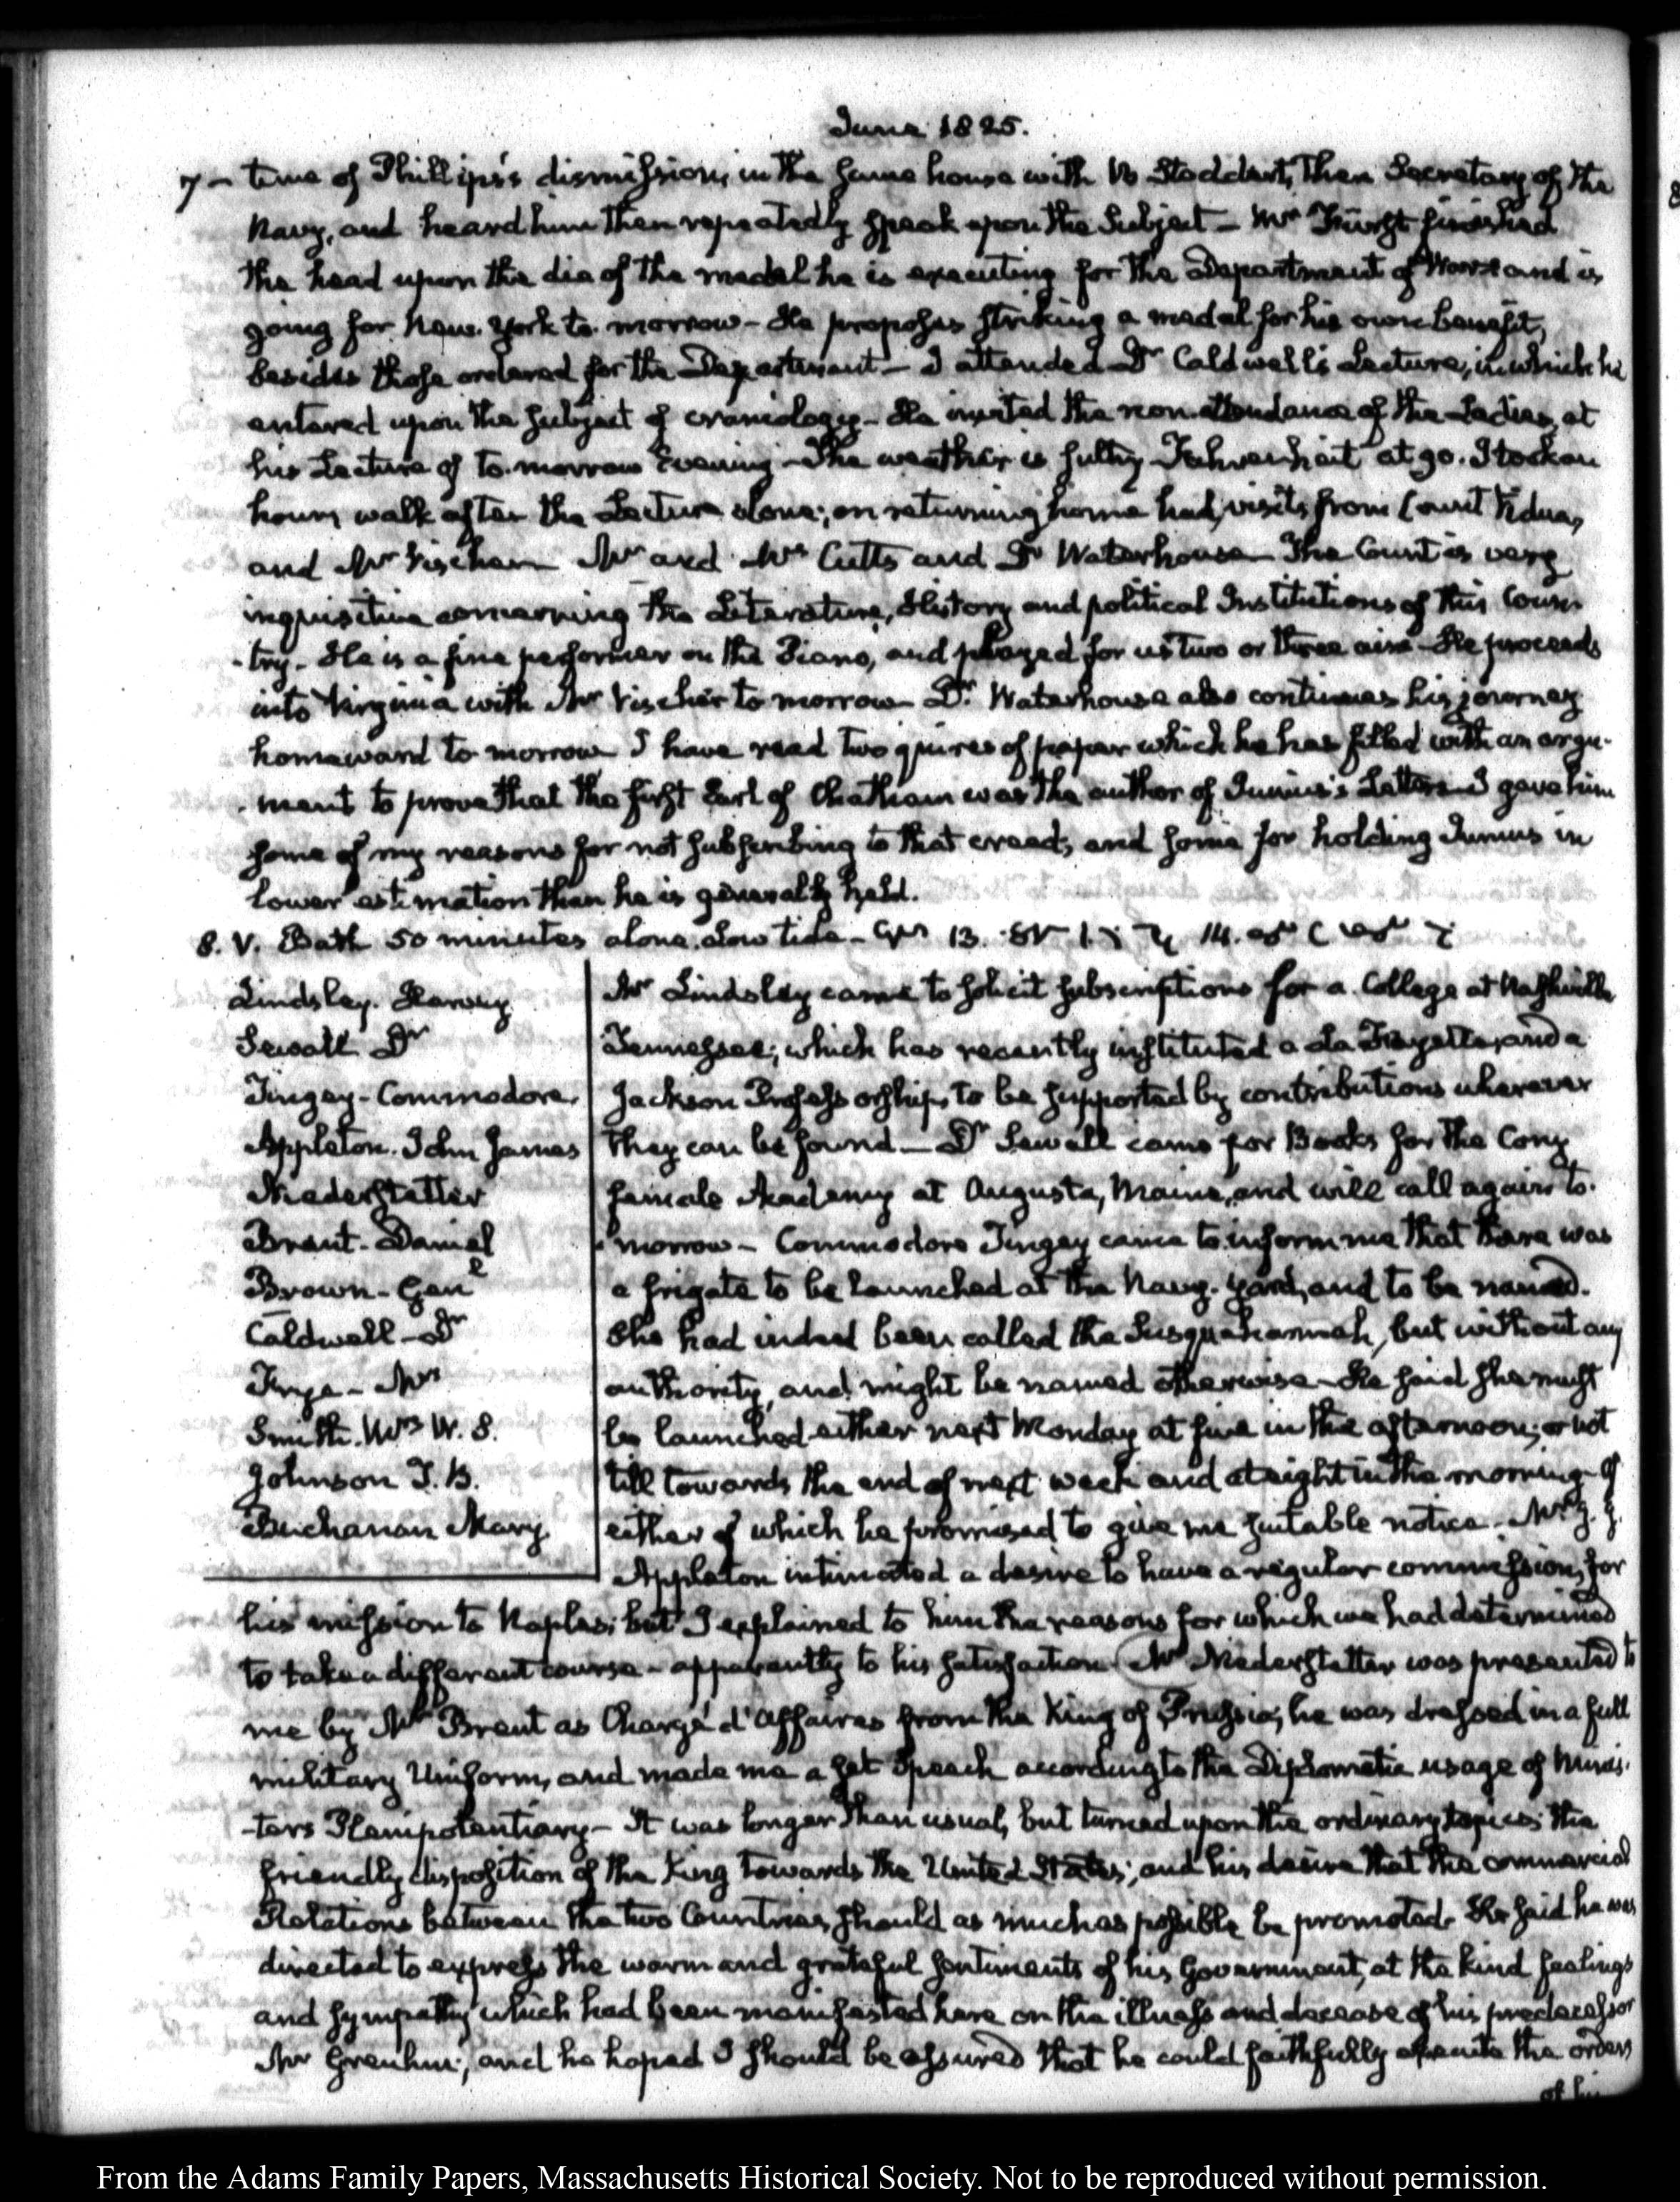 June 1825.
7 — time of Phillips's dismission, in the same house with Mr Stoddert, then Secretary of the
Navy, and heard him then repeatedly speak upon the Subject — Mr Fürst finished
the head upon the die of the medal he is executing for the Department of War and is
going for New York to-morrow — He proposes striking a medal for his own benefit,
besides those ordered for the Department — I attended Dr Caldwell's Lecture, in which he
entered upon the subject of craniology — He invited the non attendance of the Ladies, at
his Lecture of to-morrow Evening — The weather is sultry Fahrenheit at 90. I took an
hours walk after the Lecture alone; on returning home had visits from Count Vidua,
and Mr Vischer Mr and Mrs Cutts and Dr Waterhouse — The Count is very
inquisitive concerning the Literature, History and political Institutions of this Coun-
-try — He is a fine performer on the Piano, and played for us two or three airs — He proceeds
into Virginia with Mr Vischer to morrow — Dr. Waterhouse also continues his journey
homeward to-morrow I have read two quires of paper which he has filled with an argu-
-ment to prove that the first Earl of Chatham was the author of Junius's Letters — I gave him
some of my reasons for not subscribing to that creed, and some for holding Junius in
lower estimation than he is generally held.
8. V. Bath 50 minutes alone. low tide — 13. 14.
Lindsley. Harvey
Sewall Dr
Tingey — Commodore
Appleton. John James
Niederstetter
Brent — Daniel
Brown — Genl
Caldwell — Dr
Frye — Mrs
Smith. Mrs W. S.
Johnson T. B.
Buchanan Mary
Mr Lindsley came to solicit subscriptions for a College at Nashville
Tennessee; which has recently instituted a La Fayette, and a
Jackson Professorship, to be supported by contributions wherever
they can be found — Dr Sewall came for Books for the Cony
female Academy at Augusta, Maine, and will call again to-
morrow — Commodore Tingey came to inform me that there was
a frigate to be launched at the Navy-Yard, and to be named.
She had indeed been called the Susquehannah, but without any
authority, and might be named otherwise — He said she must
be launched either next Monday at five in the afternoon; or not
till towards the end of next week and at eight in the morning — of
either of which he promised to give me suitable notice. Mr J. J.
Appleton intimated a desire to have a regular commission, for
his mission to Naples; but I explained to him the reasons for which we had determined
to take a different course — apparently to his satisfaction Mr Niederstetter was presented to
me by Mr Brent as Chargé d'Affaires from the King of Prussia; he was dressed in a full
military Uniform, and made me a set Speech according to the Diplomatic usage of Minis-
-ters Plenipotentiary — It was longer than usual, but turned upon the ordinary topics; the
friendly disposition of the King towards the United States; and his desire that the commercial
Relations between the two Countries, should as much as possible be promoted. He said he was
directed to express the warm and grateful sentiments of his Government, at the kind feelings
and sympathy which had been manifested here on the illness and decease of his predecessor
Mr Greuhm; and he hoped I should be assured that he could faithfully execute the orders
of his
From the Adams Family Papers, Massachusetts Historical Society. Not to be reproduced without permission.